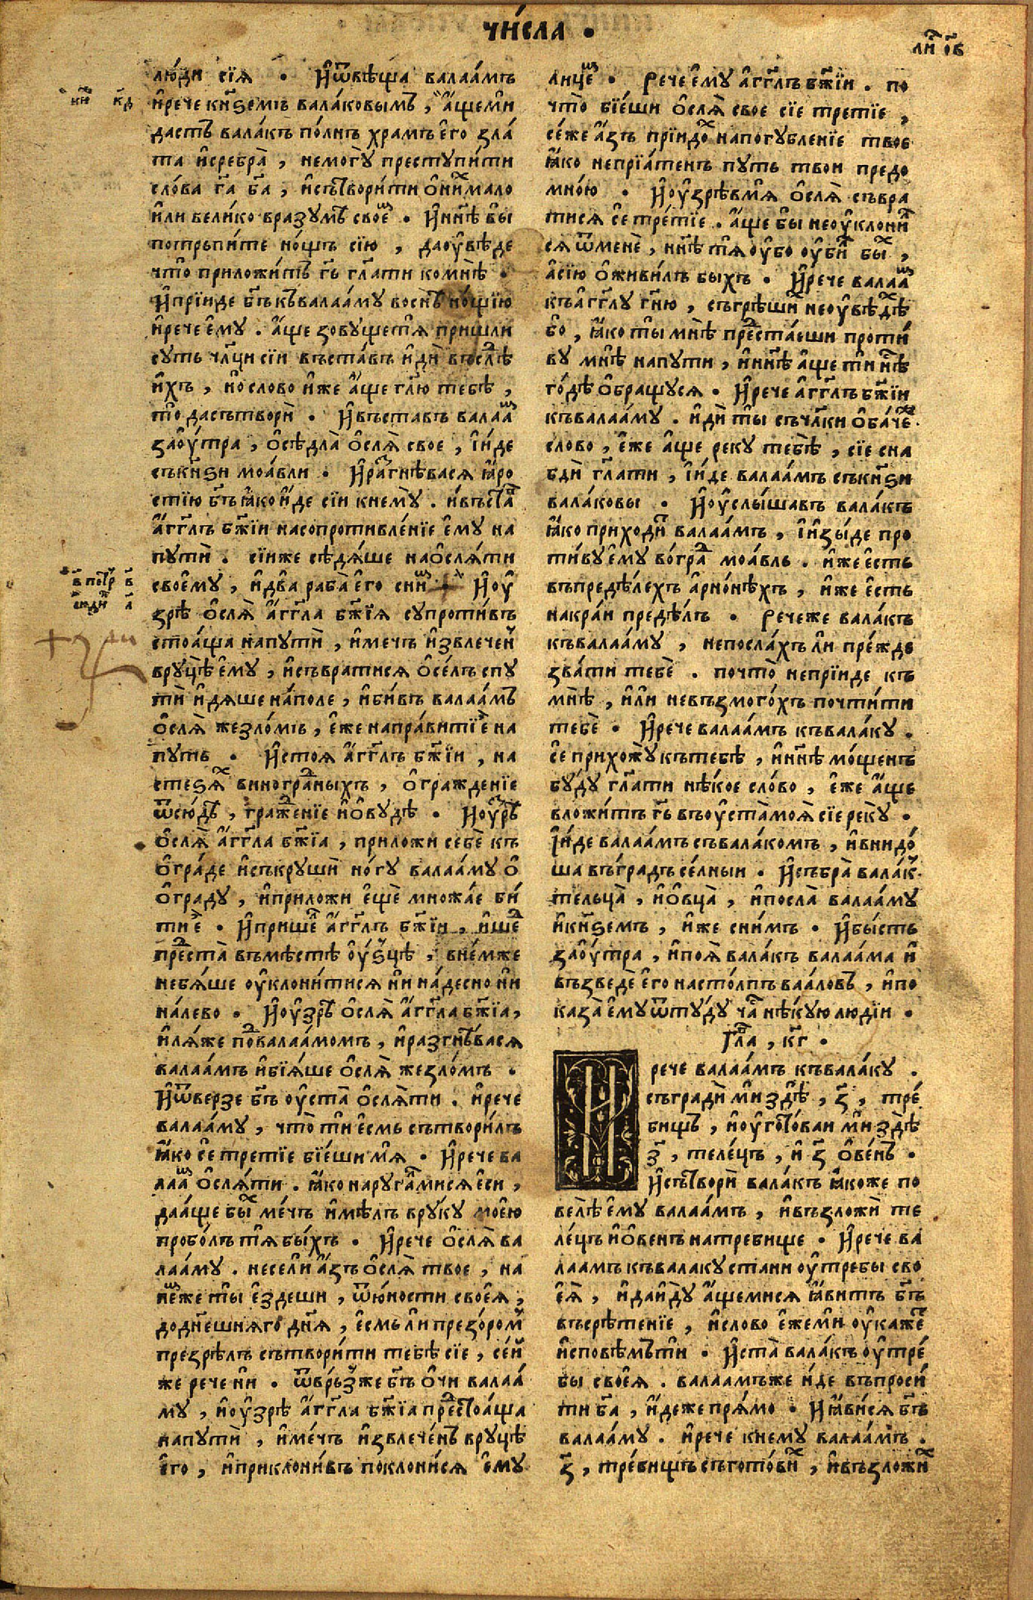 чи́сла •
ли́ ѻ҃в
лю́ди сїѧ̀ • И҆ѿвѣща̀ валаа́мъ
и҆рече кнѕемъ валаковымъ, а҆́щеми
дастъ валакъ по́лнъ храмъ е҆го̀ зла
та и҆сребра̀, немогу̀ преступи́ти
сло́ва г҃а б҃а, и҆сътвори́ти ѻ҆ни́хмало
и҆ли вели́ко вразумѣ̀ свое́мъ • И҆ны́нѣ вы
потрьпи́те но́щь сїю̀, даоу҆вѣде
что̀ приложи́тъ г҃ь гл҃ати комнѣ̀ •
И҆прїиде б҃гъ къвалаа́му восн́ѣ но́щїю
и҆рече є҆му̀. а҆́ще зовущетѧ̀ пришли
суть чл҃цы сїи въставъ и҆дѝ въслѣ́дъ
и҆́хъ, и҆но слово и҆же а҆́ще гл҃ю тебѣ̀,
то̀ дасътворѝ • И҆въставъ валаа́мъ
заоу҆́тра, ѻ҆сѣдла̀ ѻ҆слѧ̀ свое, і҆и́де
съкнѕи моа́вли • И҆разгнѣвасѧ ꙗ҆́ро
стїю б҃гъ ꙗ҆́ко и҆́де сїи кнему̀. и҆въста̀
а҆́гг҃лъ б҃жїи насопротивле́нїе є҆му̀ на
путѝ. сїиже сѣдѧ́ше наѻ҆слѧ́ти
свое́му, и҆два̀ раба̀ е҆го̀ сни́мъ • И҆оу҆
зрѣ̀ ѻ҆слѧ̀ а҆́гг҃ла б҃жїѧ супроти́въ
стоѧ́ща напутѝ, и҆мечъ и҆звлече́нъ
вруцѣ̀ е҆му̀, и҆съвратисѧ ѻ҆се́лъ спу
тѝ и҆дѧше на́поле, и҆бѝвъ валаа́мъ
ѻ҆слѧ̀ жезло́мъ, е҆же напра́витиѐ на
путь • И҆стоѧ а҆́гг҃лъ б҃жїи, на
стезѧ́хъ виногра́дныхъ, ѻ҆гражденїе
ѿсю́дѣ, гражⷣенїе и҆ѻ҆вудѣ • И҆оу҆зрѣ̀
ѻ҆слѧ̀ а҆́гг҃ла б҃жїа, приложи себѐ къ
ѻ҆гра́де и҆съкрушѝ но́гу валаа́му ѻ҆
ѻ҆граду, и҆приложи є҆щѐ множа́е би́
тиѐ • И҆пришеⷣ а҆́гг҃лъ б҃жїи, и҆шеⷣ
преⷣста̀ въмѣстѣ̀ оу҆́зцѣ, вне́мже
небѧ́ше оу҆клони́тисѧ ни на́десно ни
на́лево • И҆оу҆зрѣ̀ ѻ҆слѧ̀ а҆́гг҃ла б҃жїа,
и҆лѧ́же поⷣвалаамомъ, и҆разгнѣвасѧ
валаамъ и҆бїѧ́ше ѻ҆слѧ̀ жезло́мъ •
И҆ѿверзе б҃гъ оу҆ста̀ ѻ҆слѧ́ти. и҆рече
валаа́му, что̀ ти е҆смь сътвори́лъ
ꙗ҆́ко се третїе бїешимѧ̀ • И҆рече ва
лаа́мъ ѻ҆слѧ́ти. ꙗ҆́ко наругаⷧмисѧ е҆си,
даа҆ще бы́хъ ме́чъ и҆мѣлъ вру́ку мое́ю
пробо́лъ тѧ бы́хъ • И҆рече ѻ҆слѧ̀ ва
лаа́му. несе́ли а҆́зъ ѻ҆слѧ̀ твое, на
не́мже ты̀ е҆здеши, ѿю́ности своеѧ̀,
дод҃нешнѧго д҃нѧ̀, е҆смь ли презоромъ
презрѣлъ сътвори́ти тебѣ̀ сїе, се́й
же рече ни • ѿврьзже б҃гъ ѻ҆́чи валаа́
му, и҆оу҆зрѣ̀ а҆́гг҃ла б҃жїа преⷣстоѧ́ща
напутѝ, и҆ме́чъ и҆звлече́нъ вруцѣ̀
е҆го, и҆приклони́въ поклони́сѧ е҆му
лице́мъ • Рече є҆му а҆́гг҃лъ б҃жїи. по
что̀ бїе́ши ѻ҆слѧ̀ свое сїе третїе,
се́же а҆́зъ прїидо́хъ напогубленїе твое
ꙗ҆́ко непрїѧ́тенъ путь твои предо
мно́ю • И҆оу҆зрѣ́вмѧ ѻ҆слѧ̀ съвра
тисѧ се тре́тїе. а҆ще бы неоу҆клони́л
сѧ ѿменѐ, нн҃ѣ тѧ оу҆́бо оу҆би́лъ бы́хъ,
а҆сїю ѻ҆живи́лъ быхъ • И҆рече валаа́мъ
къа҆́гг҃лу г҃ню, съгрѣши́хъ неоу҆вѣ́дѣ
бо, ꙗ҆́ко ты̀ мнѣ̀ преⷣста́еши проти́
ву мнѣ̀ напути, и҆нн҃ѣ а҆́ще ти нѣ́
го́дѣ ѻ҆бращусѧ • И҆рече а҆́гг҃лъ б҃жїи
къвалаа́му. и҆дѝ ты̀ съчл҃ки ѻ҆ба́че.
слово, є҆́же а҆́ще реку тебѣ̀, сїе сна
бдѝ гл҃ати, і҆и́де валаа́мъ съкнѕи
вала́ковы • И҆оу҆слы́шавъ вала́къ
ꙗ҆́ко приходи́тъ валаа́мъ, і҆и҆зы́де про
ти́ву є҆му во́граⷣ моа́вль. и҆же є҆сть
въпредѣ́лехъ арно́нѣхъ, и҆же є҆сть
накра́и предѣ́лъ • Речеже вала́къ
къвалаа́му, непосла́хъ ли пре́жде
зва́ти тебѐ. почто̀ непрїиде къ
мнѣ̀, и҆ли невъзмого́хъ почти́ти
тебѐ • И҆рече валаа́мъ къвала́ку.
се прихожу̀ къ тебѣ̀, и҆нн҃ѣ мо́щенъ
бу́ду гл҃ати нѣ́кое сло́во, є҆́же а҆́ще
вложи́тъ г҃ь въоу҆ста̀моѧ̀ сїе реку̀.
І҆и́де валаа́мъ съвалакомъ, и҆внидо́
ша въгра́дъ се́лныи • И҆събра̀ вала́къ.
тельца̀, и҆ѻ҆вца̀, и҆посла̀ валаа́му
и҆кнѕемъ, и҆же сни́мъ • И҆бы́сть
заоу҆́тра, и҆поѧ̀ вала́къ валаа́ма и҆
възведѐ е҆го̀ настолпъ ваа́ловъ, и҆по
каза̀ е҆му ѿту́ду чаⷭ нѣ́кую людїи •
Глⷡ҇а, к҃г •
И рече валаа́мъ къвала́ку.
съградѝ ми здѣ̀, з҃, тре́
бищъ, и҆оу҆гото́ваи ми здѣ̀
з҃, теле́цъ, и҆ з҃ ѻ҆ве́нъ •
И҆сътворѝ вала́къ ꙗ҆́коже по
велѣ̀ є҆му̀ валаа́мъ, и҆възложѝ те
ле́цъ и҆ѻ҆венъ натребище • И҆рече ва́
лаамъ къвалаку стани оу҆ требы сво
е҆ѧ̀, и҆да и҆ду а҆́щемисѧ ꙗ҆́витъ б҃гъ
въсрѣтенїе, и҆слово є҆жеми оу҆кажетъ
и҆сповѣмъти • И҆ста̀ вала́къ оу҆тре́
бы своеѧ. валаамъже и҆́де въпроси́
ти б҃а, и҆деже прѧ́мо • И҆ꙗви́сѧ б҃гъ
валаа́му. и҆рече кнему валаа́мъ.
з҃, тре́бищъ съгото́вихъ, и҆възложи́хъ